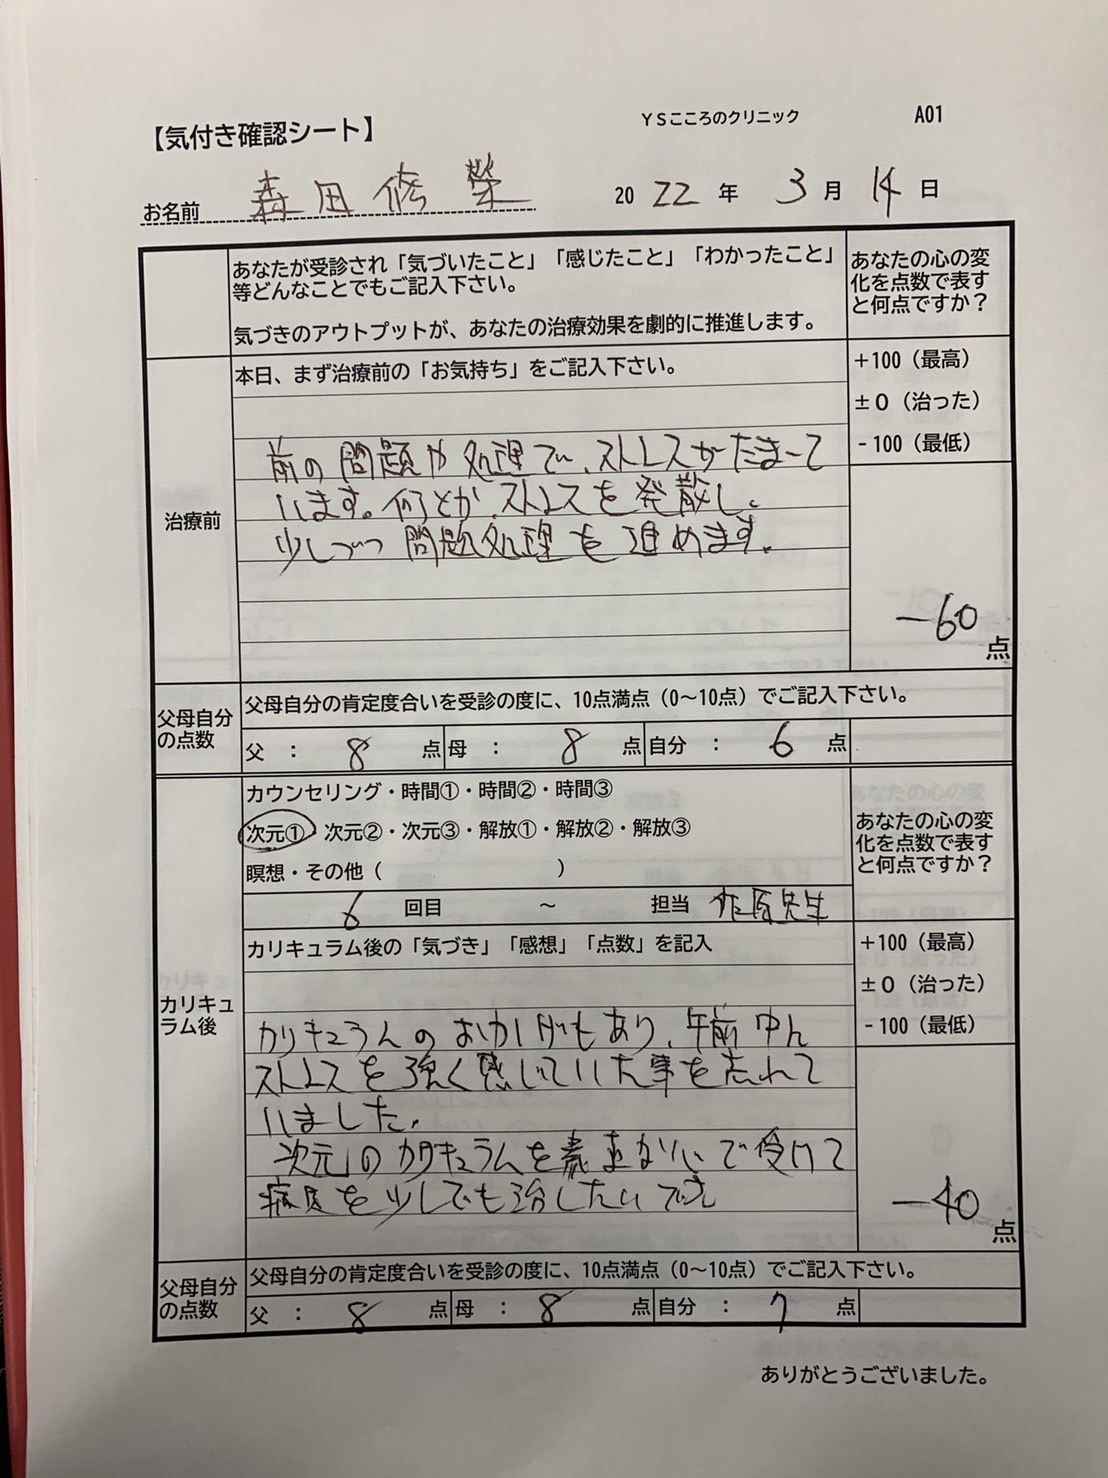 【気付き確認シート】 YSこころのクリニック A01
お名前 森田修榮 2022年3月14日
あなたが受診され「気づいたこと」「感じたこと」「わかったこと」
等どんなことでもご記入下さい。
気づきのアウトプットが、あなたの治療効果を劇的に推進します。
あなたの心の変
化を点数で表す
と何点ですか？
治療前
本日、まず治療前の「お気持ち」をご記入下さい。
前の問題や処理で、ストレスがたまって
います。何とか、ストレスを発散し、
少しづつ問題処理を進めます。
+100（最高）
±0（治った）
-100（最低）
-60点
父母自分
の点数
父母自分の肯定度合いを受診の度に、10点満点（0～10点）でご記入下さい。
父：8点 母：8点 自分：6点
カウンセリング・時間①・時間②・時間③
次元① 次元②・次元③・解放①・解放②・解放③
瞑想・その他（ ）
6回目 ～ 担当 先生
あなたの心の変
化を点数で表す
と何点ですか？
カリキュ
ラム後
カリキュラム後の「気づき」「感想」「点数」を記入
カリキュラムのおかげもあり、午前中ん
ストレスを強く感じていた事を忘れて
いました。
次元1のカリキュラムを焦らないで受けて
病気を少しでも治したいです
+100（最高）
±0（治った）
-100（最低）
-40点
父母自分
の点数
父母自分の肯定度合いを受診の度に、10点満点（0～10点）でご記入下さい。
父：8点 母：8点 自分：7点
ありがとうございました。